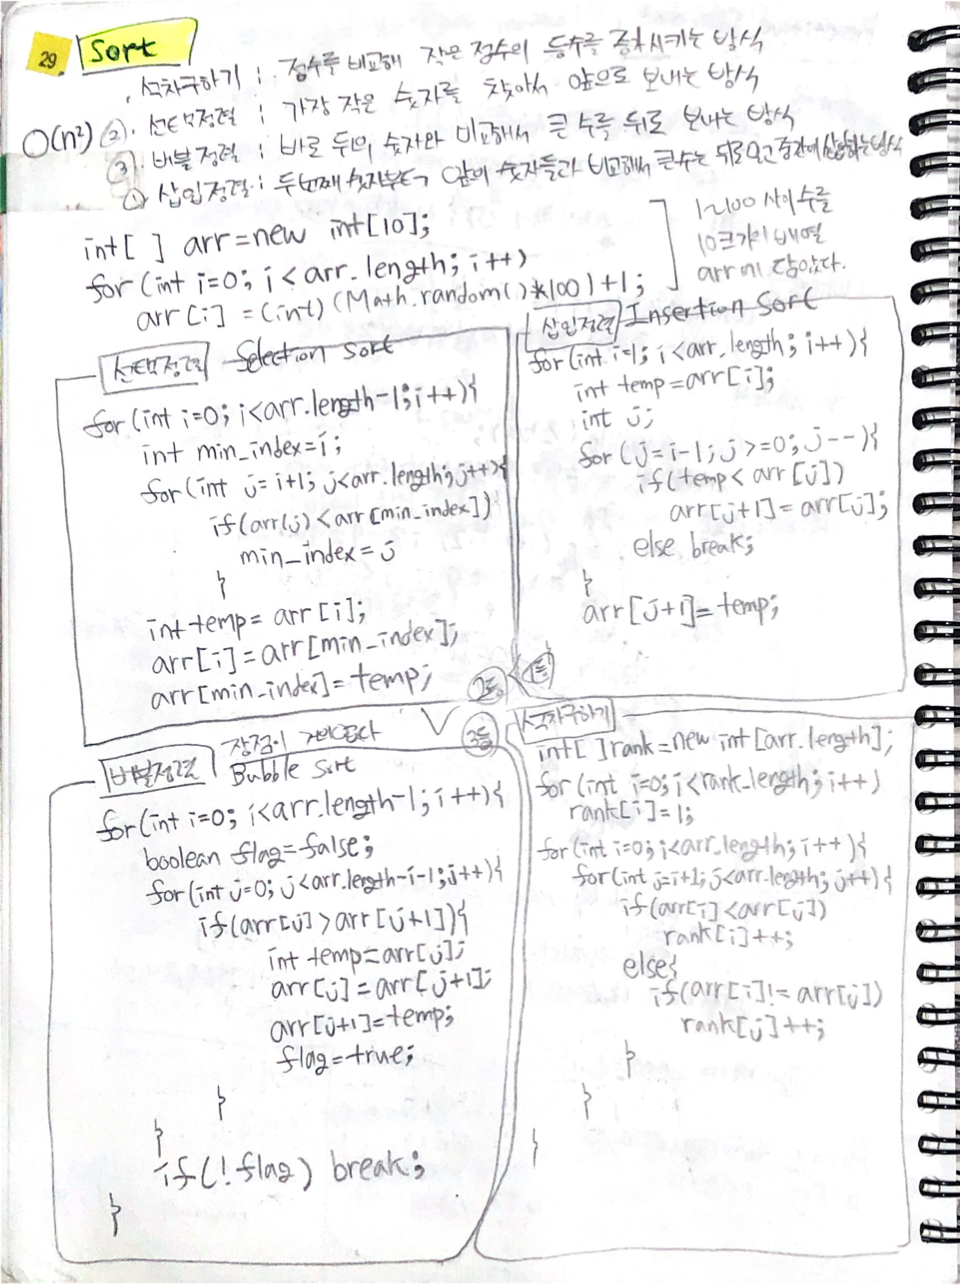 29 Sort
석차구하기 : 점수를 비교해 작은 점수의 등수를 증가시키는 방식
O(n²) ②. 선택정렬 : 가장 작은 숫자를 찾아서 앞으로 보내는 방식
③. 버블정렬 : 바로 뒤의 숫자와 비교해서 큰 수를 뒤로 보내는 방식
①. 삽입정렬 : 두번째 숫자부터 앞의 숫자들과 비교해서 큰수는 뒤로 밀고 중간에 삽입하는 방식
int[ ] arr=new int[10];
for(int i=0; i<arr.length; i++)
arr[i] = (int)(Math.random()*100)+1;
1~100 사이 수를
10크기의 배열
arr에 담았다.
선택정렬 Selection Sort
for(int i=0; i<arr.length-1; i++){
int min_index=i;
for(int j=i+1; j<arr.length; j++){
if(arr(j)<arr[min_index])
min_index=j
}
int temp= arr[i];
arr[i]=arr[min_index];
arr[min_index]=temp;
2등
삽입정렬 Insertion Sort
for(int i=1; i<arr.length; i++){
int temp=arr[i];
int j;
for(j=i-1; j>=0; j--){
if(temp<arr[j])
arr[j+1]=arr[j];
else break;
}
arr[j+1]=temp;
}
1등
버블정렬 장점이 게으르다
Bubble Sort
3등
for(int i=0; i<arr.length-1; i++){
boolean flag=false;
for(int j=0; j<arr.length-i-1; j++){
if(arr[j]>arr[j+1]){
int temp=arr[j];
arr[j]=arr[j+1];
arr[j+1]=temp;
flag=true;
}
}
if(!flag) break;
}
석차구하기
int[ ]rank=new int[arr.length];
for(int i=0; i<rank.length; i++)
rank[i]=1;
for(int i=0; i<arr.length; i++){
for(int j=i+1; j<arr.length; j++){
if(arr[i]<arr[j])
rank[i]++;
else{
if(arr[i]!=arr[j])
rank[j]++;
}
}
}